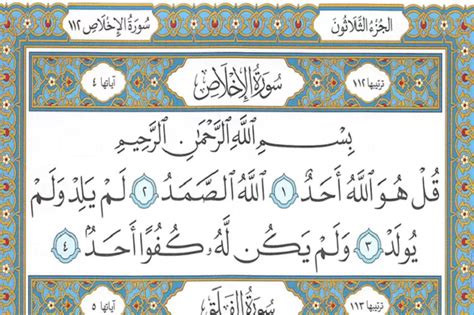 الجزء الثلاثون
سورة الإخلاص ١١٢
ترتيبها ١١٢
سورة الإخلاص
آياتها ٤
بِسْمِ اللَّهِ الرَّحْمَٰنِ الرَّحِيمِ
قُلْ هُوَ اللَّهُ أَحَدٌ ١ اللَّهُ الصَّمَدُ ٢ لَمْ يَلِدْ وَلَمْ
يُولَدْ ٣ وَلَمْ يَكُن لَّهُ كُفُوًا أَحَدٌ ٤
ترتيبها ١١٣
سورة الفلق
آياتها ٥